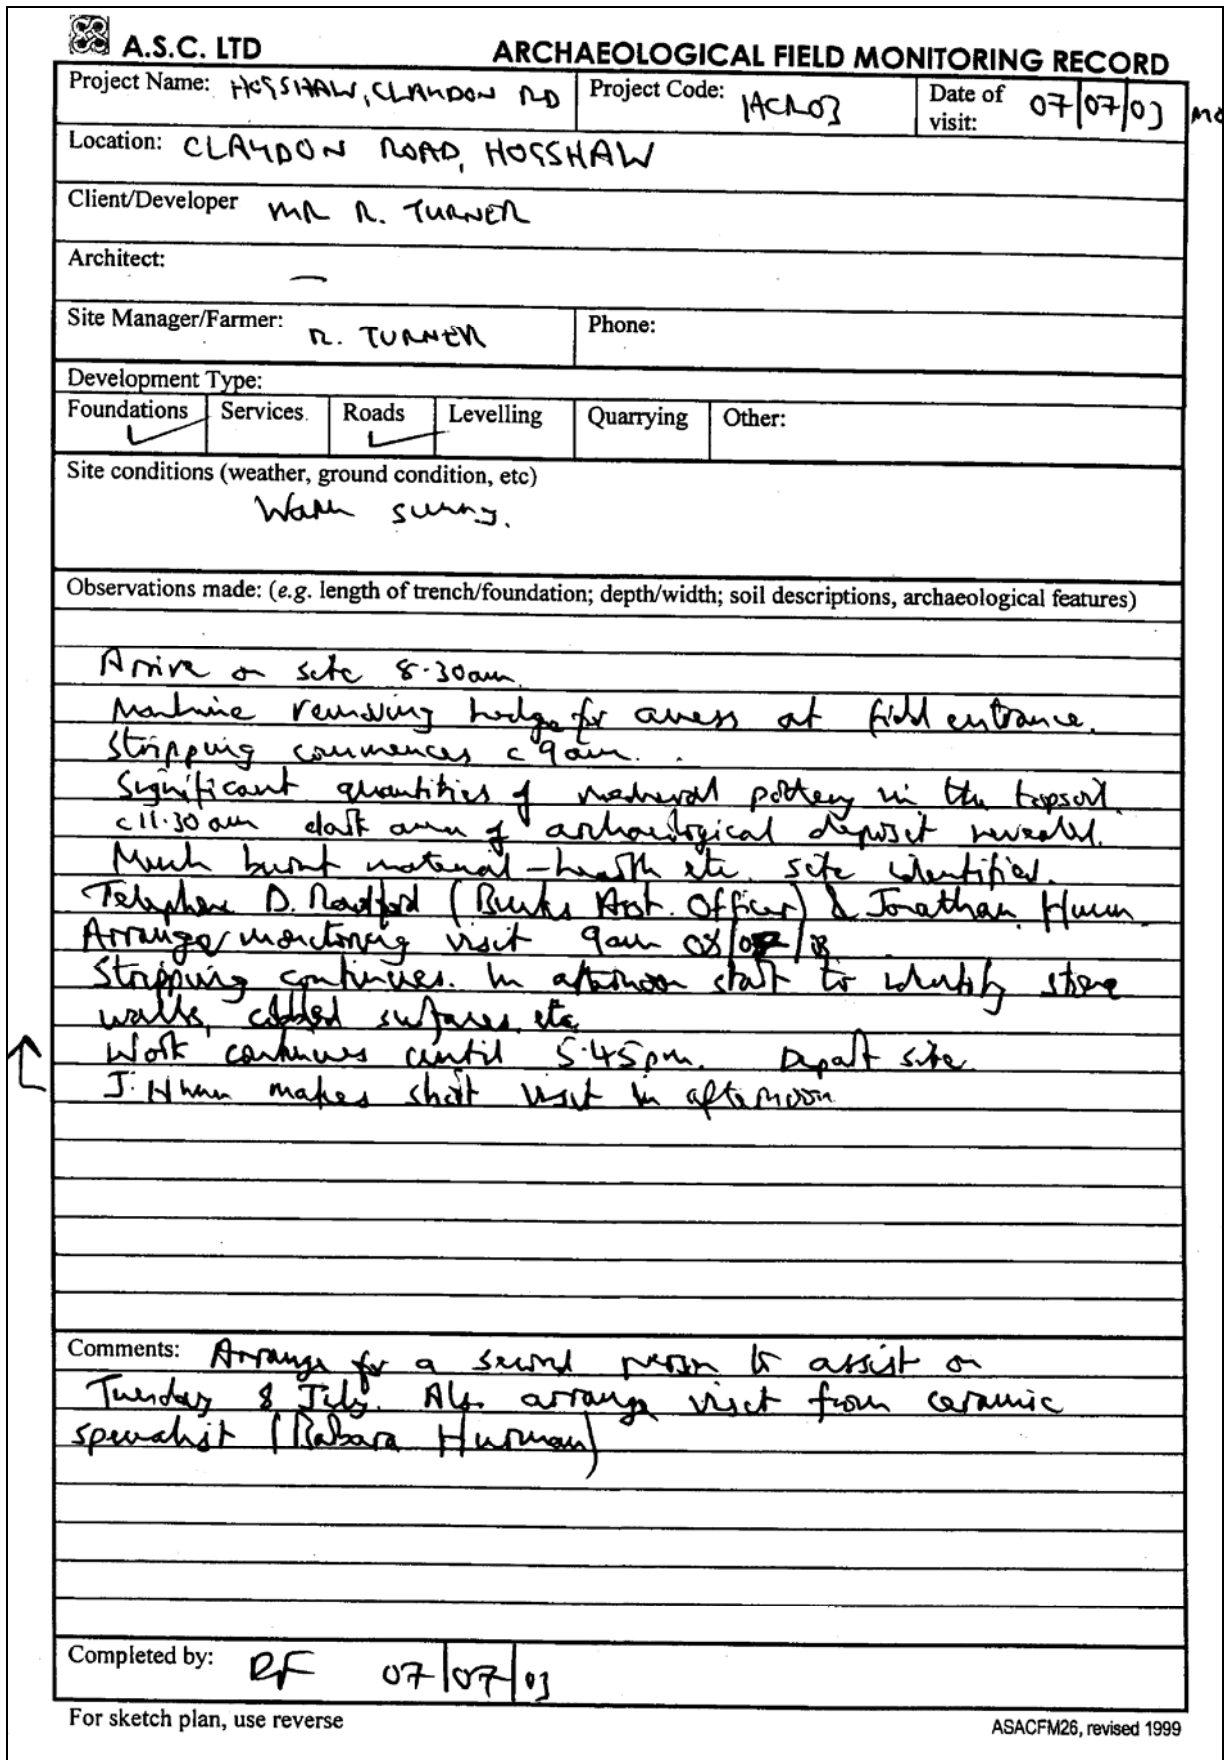 A.S.C. LTD
ARCHAEOLOGICAL FIELD MONITORING RECORD
Project Name: HOGSHAW, CLAYDON RD
Project Code: HCR03
Date of visit: 07/07/03
Location: CLAYDON ROAD, HOGSHAW
Client/Developer MR R. TURNER
Architect: —
Site Manager/Farmer: R. TURNER
Phone:
Development Type:
Foundations ✓ Services Roads ✓ Levelling Quarrying Other:
Site conditions (weather, ground condition, etc)
Warm sunny.
Observations made: (e.g. length of trench/foundation; depth/width; soil descriptions, archaeological features)
Arrive on site 8.30am.
Machine removing hedge for access at field entrance.
Stripping commences c 9am.
Significant quantities of medieval pottery in the topsoil.
c11.30am dark area of archaeological deposit revealed.
Much burnt material - hearth etc. site identified.
Telephone D. Radford (Bucks Arch. Officer) & Jonathan Hunn
Arrange monitoring visit 9am 08/07/03
Stripping continues. In afternoon start to identify stone
walls, cobbled surfaces etc
Work continues until 5.45pm. Depart site.
J. Hunn makes short visit in afternoon
Comments: Arrange for a second person to assist on
Tuesday 8 July. Also arrange visit from ceramic
specialist (Barbara Hurman)
Completed by: RF 07/07/03
For sketch plan, use reverse
ASACFM26, revised 1999